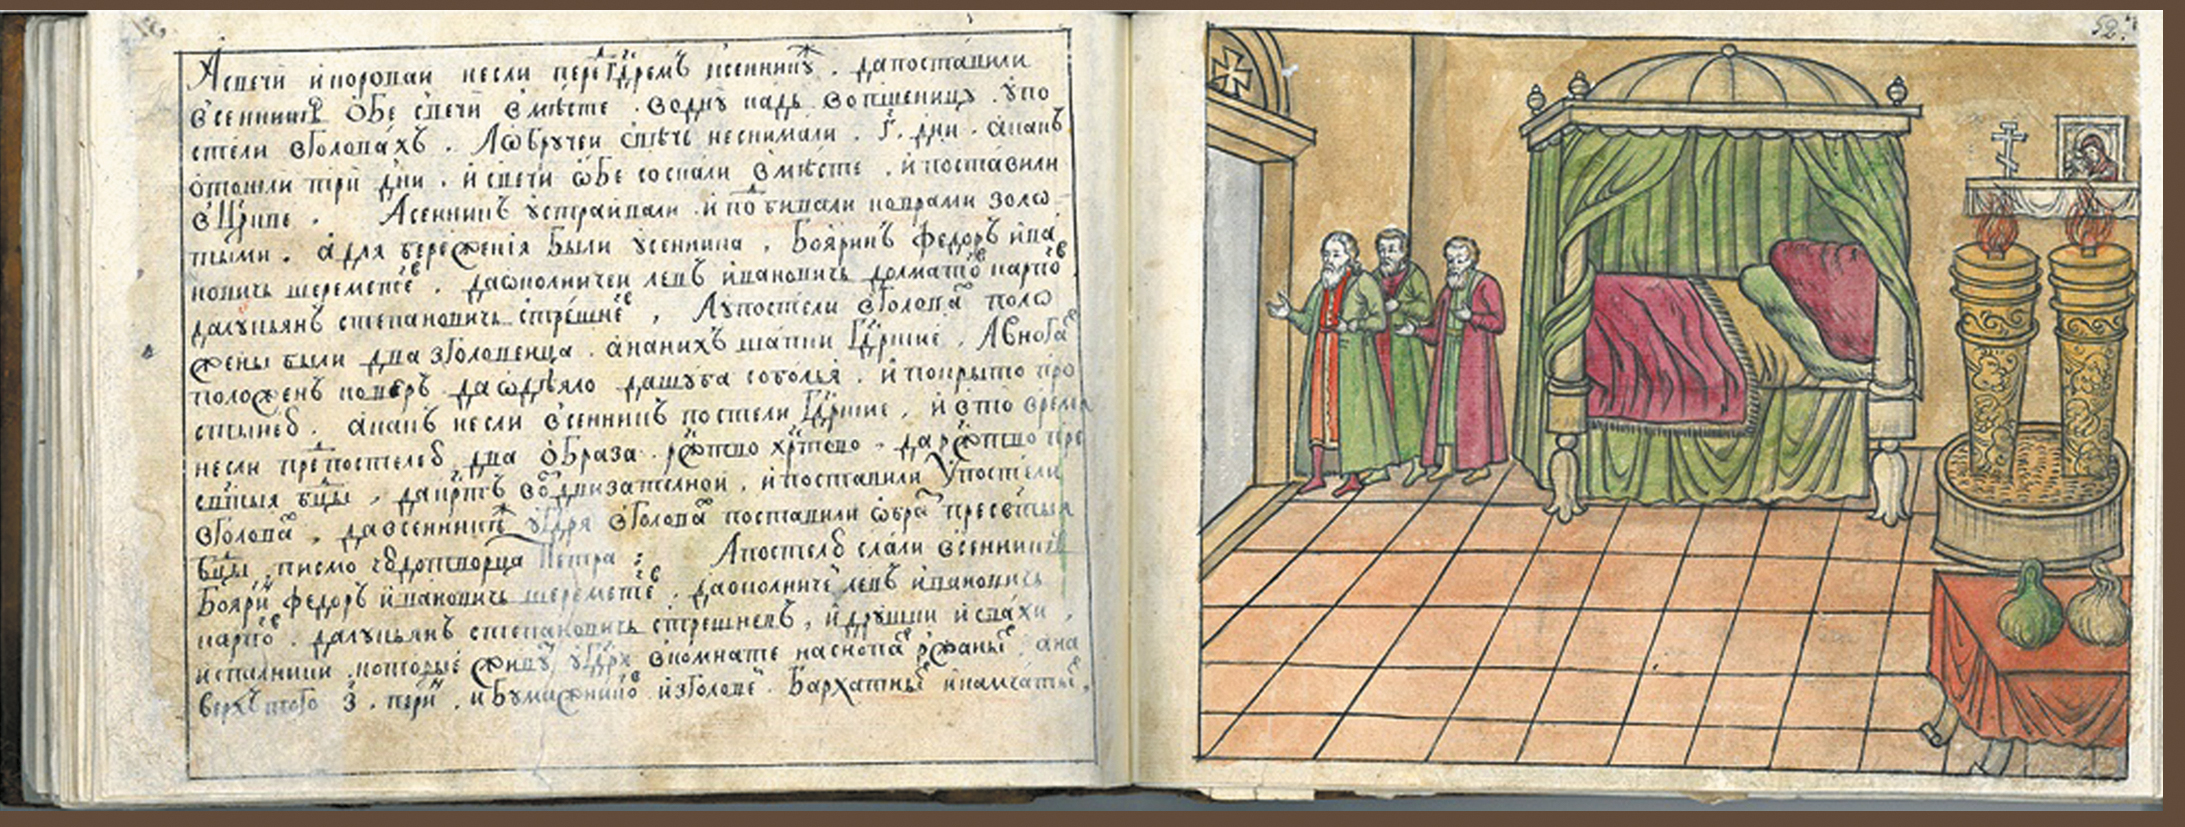 А свечи и короваи несли перед гдремъ к сеннику же. да поставили
в сеннике обе свечи в мѣсте. в одну кадь во пшеницу. у по
стели в головахъ. А ѡбручеи с свѣчь не снимали. г҃. дни. а какъ
отошли три дни. и свечи ѡбе соскали в мѣсте. и поставили
в цркве. А сенникъ устраивали и по бивали коврами золо
тыми. а для бережения были у сенника. Бояринъ Федоръ ива
новичь шереметев. да ѡколничеи левъ ивановичь долматов карпов.
да лукьянъ степановичь стрешнев. А у постели в головах поло
жены были два зголовенца. а на нихъ шапки гдрские. А в ногах
положенъ коверъ да ѡдѣяло да шуба соболья. и покрыто про
стынеѵ. а какъ несли в сенникъ постели гдрские. и в то время
несли пред постелеѵ два образа. ржтво хртово. да ржтво пре
свтыя бцы. да крть воздвизателнои. и поставили у постели
в головах. да в сеннике ж у гдря в головах поставили ѡбраз пресвтыя
бцы писмо чѵдотворца Петра: А постелѵ слали в сеннике
Бояринъ федоръ ивановичь шереметев. да околничеи левъ ивановичь
карпов. да лукьянъ степановичь стрешневъ, и друшки и свахи,
и спалники. которые живут у гдря в комнате на снопах ржаных. а на
верхъ того з҃. перин. и бумажников и зголовеи. Бархатные и камчатые,
52.